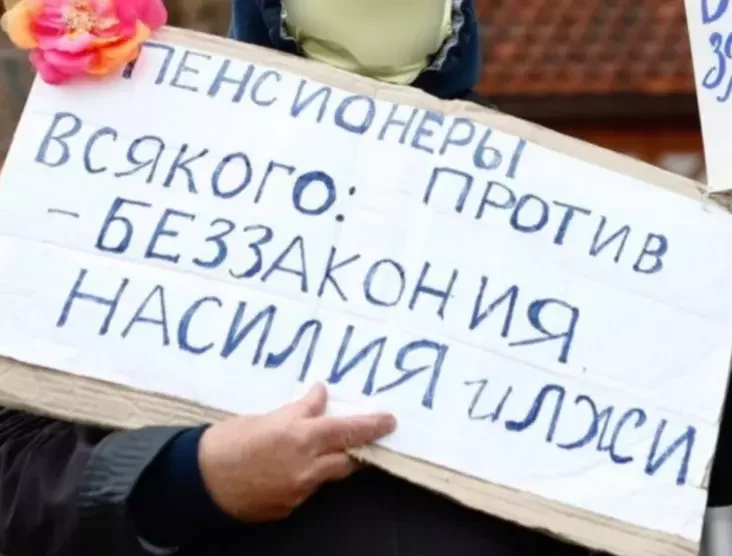 ПЕНСИОНЕРЫ
ПРОТИВ
ВСЯКОГО:
- БЕЗЗАКОНИЯ
НАСИЛИЯ и ЛЖИ